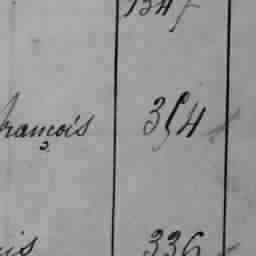 1347
françois 354
is 336